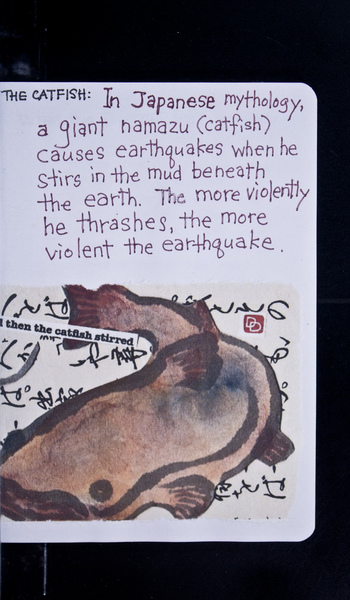 THE CATFISH: In Japanese mythology,
a giant namazu (catfish)
causes earthquakes when he
stirs in the mud beneath
the earth. The more violently
he thrashes, the more
violent the earthquake.
then the catfish stirred